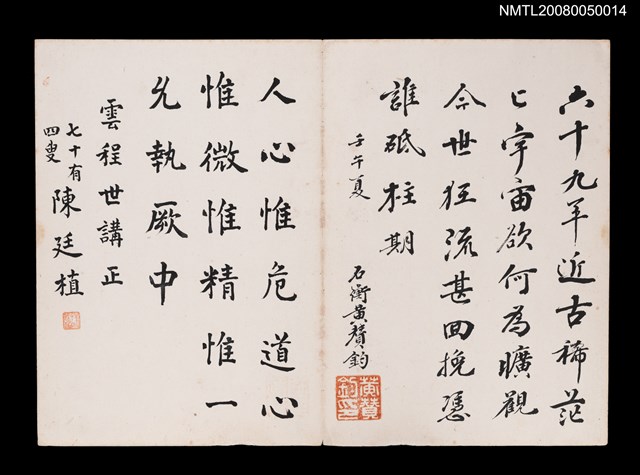 NMTL20080050014
六十九年近古稀茫
亡宇宙欲何為曠觀
今世狂流甚回挽憑
誰砥柱期
壬午夏
石衡黃贊鈞
黃贊
鈞印
人心惟危道心
惟微惟精惟一
允執厥中
雲程世講正
七十有
四叟
陳廷植